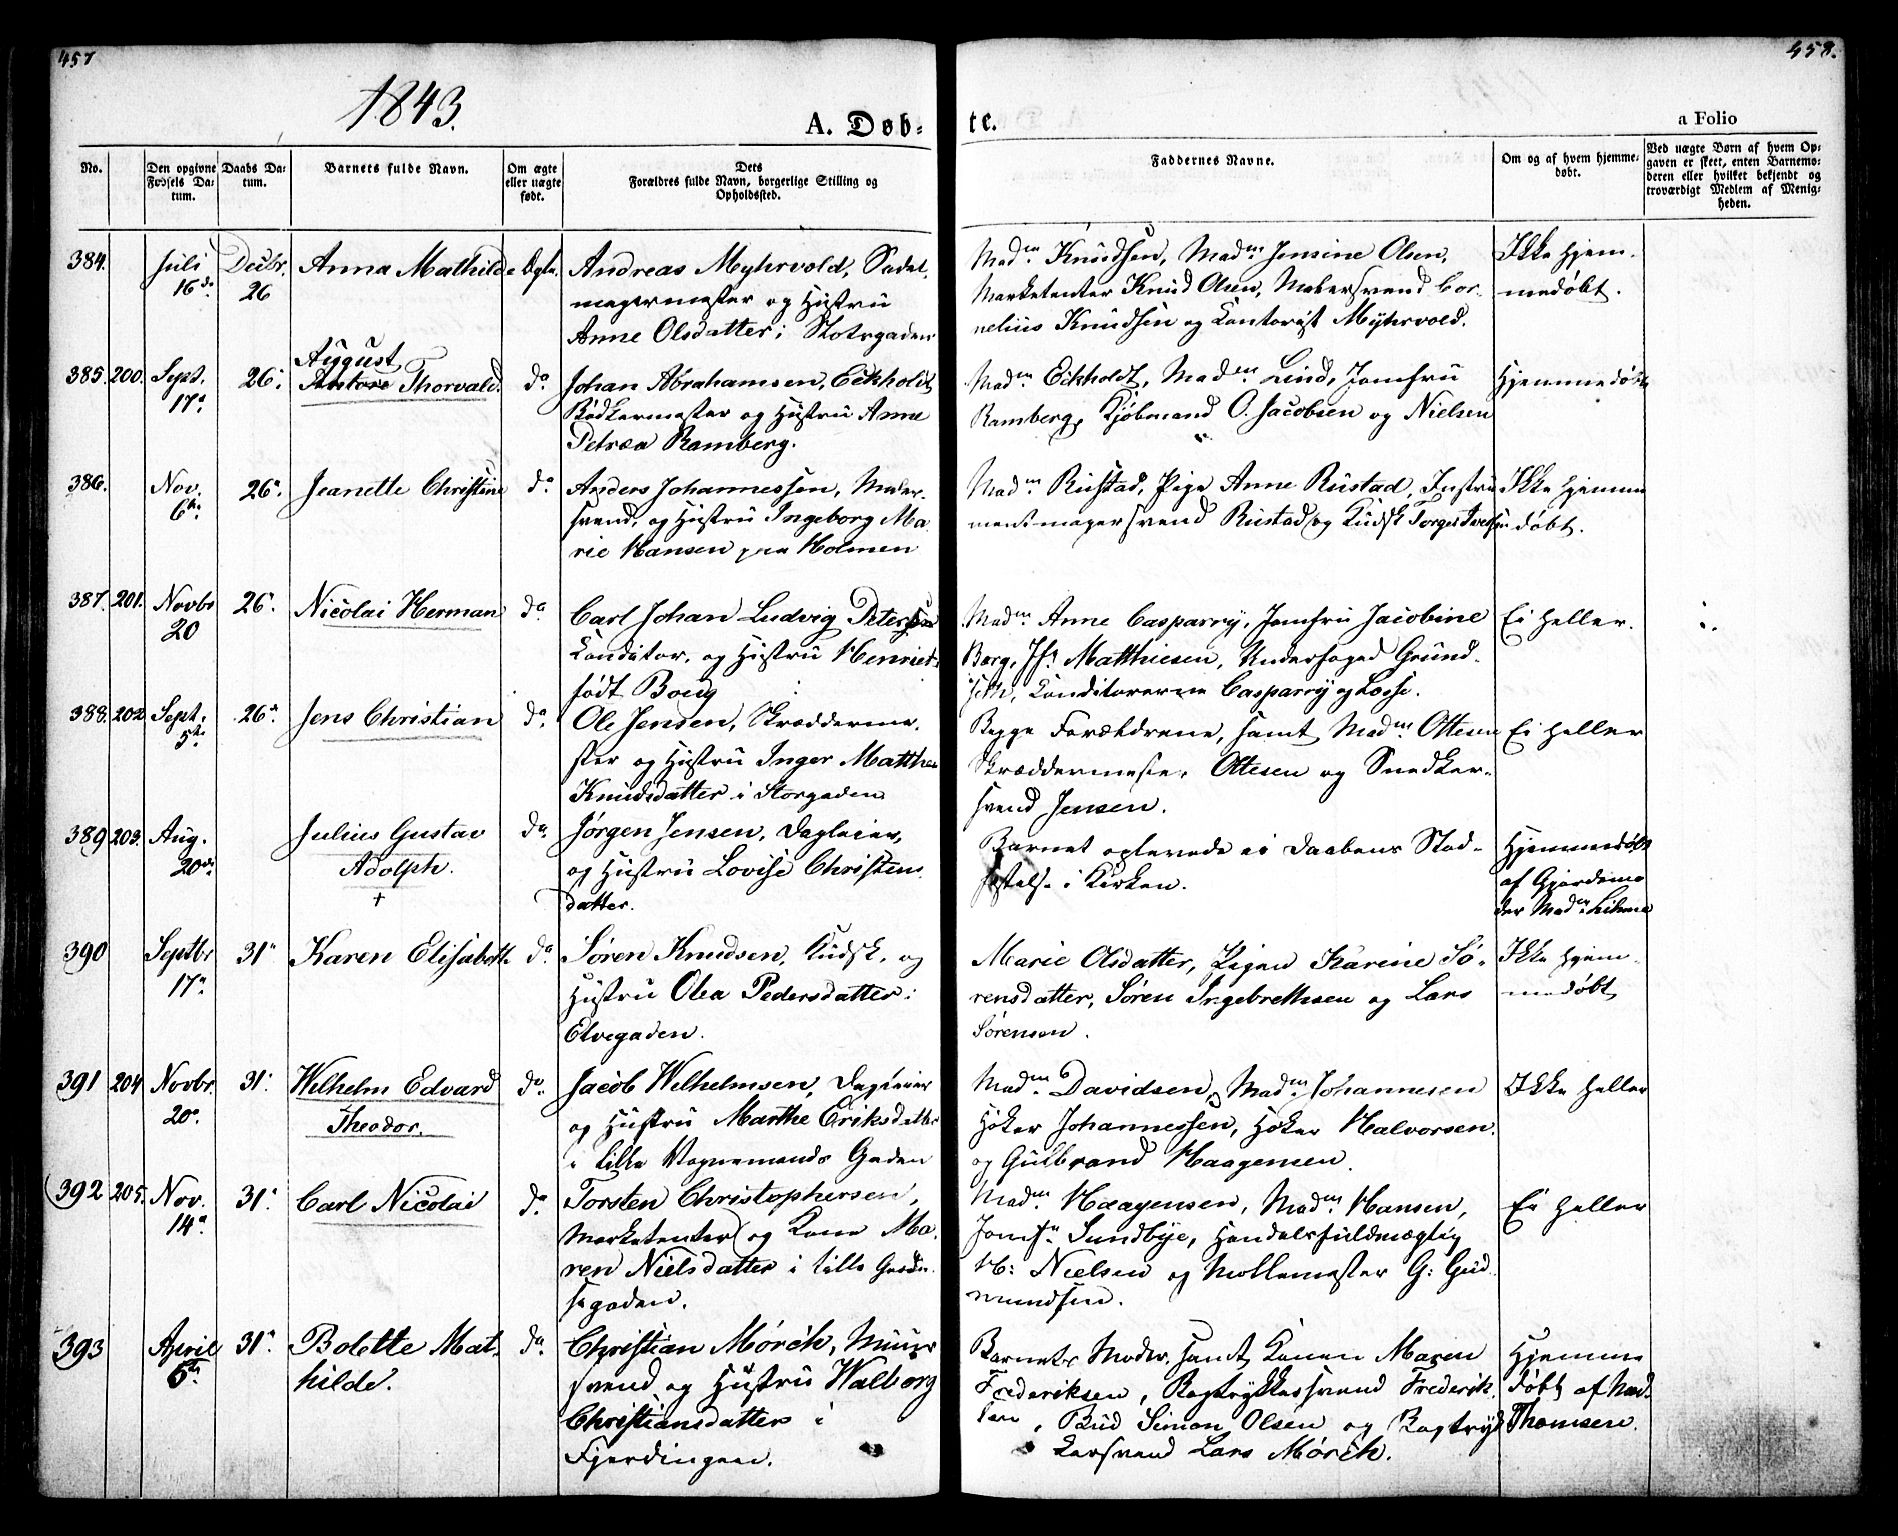 457
458.
1843.
A. Døb-
te.
a Folio
No.
Den opgivne Fødsels Datum.
Daabs Datum.
Barnets fulde Navn.
Om ægte eller uægte født.
Dets Forældres fulde Navn, borgerlige Stilling og Opholdssted.
Faddernes Navne.
Om og af hvem hjemmedøbt.
Ved uægte Børn af hvem Opgaven er skeet, enten Barnemoderen eller hvilket bekjendt og troværdigt Medlem af Menigheden.
384. Juli Decbr. Anna Mathilde Ægte. Andreas Myhrvold, Sadel-
16de 26 magermester og Hustru
Anne Olsdatter i Storgaden
Madm. Knudsen, Madm. Jensine Olsen,
Marketenter Knud Olsen, Malersvend Cor-
nelius Knudsen og Contorist Myhrvold.
Ikke hjem-
medøbt.
August
385. 200. Sept. 26. Thorvald. do Johan Abrahamsen Eckholdt
17. Bødkermester og Hustru Anne
Petræa Ramberg.
Madm. Eckholdt, Madm. Lind, Jomfru
Ramberg, Kjøbmand O. Jacobsen og Nielsen
Hjemmedøbt
386. Nov. 26. Jeanette Christine do Anders Johannessen, Maler-
6te svend, og Hustru Ingeborg Ma-
rie Hansen paa Holmen
Madm. Rustad, Pige Anne Rustad, Instru
mentmagersvend Rustad og Kudsk Torger
Ikke hjemme
døbt.
387. 201. Novbr 26. Nicolai Herman do Carl Johan Ludvig Petersen
20 Konditor, og Hustru Henriette
født Boeg
Madm. Anne Casparry, Jomfru Jacobine
Borg, Jfr. Matthiesen, Undersaged Grund-
seth, Conditorerne Casparry og Losse.
Ei heller.
388. 202 Sept. 26. Jens Christian do Ole Jensen, Skræddermes-
5te ter og Hustru Inger Mathea
Knudsdatter i Storgaden
Begge Forældrene, samt Madm. Ottesen
Skræddermester Ottesen og Snedker-
svend Jensen.
Ei heller
389 203. Aug. Julius Gustav do Jørgen Jensen, Dagleier,
20de Adolph. og Hustru Lovise Christens
† datter.
Barnet oplevede ei Daabens Stad-
fæstelse i Kirken.
Hjemmedøbt
af Gjordemo
der Madm.
390 Septbr 31 Karen Elisabeth do Søren Knudsen, Kudsk, og
17. Hustru Olea Pedersdatter i
Elvegaden.
Marie Olsdatter, Pigen Karine Sø-
rensdatter, Søren Ingebrethsen og Lars
Sørensen.
Ikke hjem-
medøbt
391 204 Novbr. 31. Wilhelm Edvard do Jacob Wilhelmsen, Dagleier
20. Theodor. og Hustru Marthe Eriksdatter
i lille Vognmands Gaden
Madm. Davidsen, Madm. Johannesen
Høker Johannessen, Høker Halvorsen.
og Gulbrand Haagensen.
Ikke heller
392 205. Nov. 31. Carl Nicolai do Torsten Christophersen,
14. Marketenter og Kone Ma-
ren Nielsdatter i lille Græn-
segaden.
Madm. Haagensen, Madm. Hansen,
Jomfr. Sundbye, Handelsfuldmægtig
H: Nielsen og Møllemester G: Gud-
mundsen.
Ei heller
393 April 31. Bolette Mat- do Christian Mørch, Muur
5te hilde. svend og Hustru Walborg
Christiansdatter i
Fjerdingen.
Barnets Moder, samt Konen Maren
Frederiksen, Bogtrykkersvend Frederik-
sen, Bud Simon Olsen og Bogtryk
kersvend Lars Mørch.
Hjemme
døbt af Mad.
Thomsen.